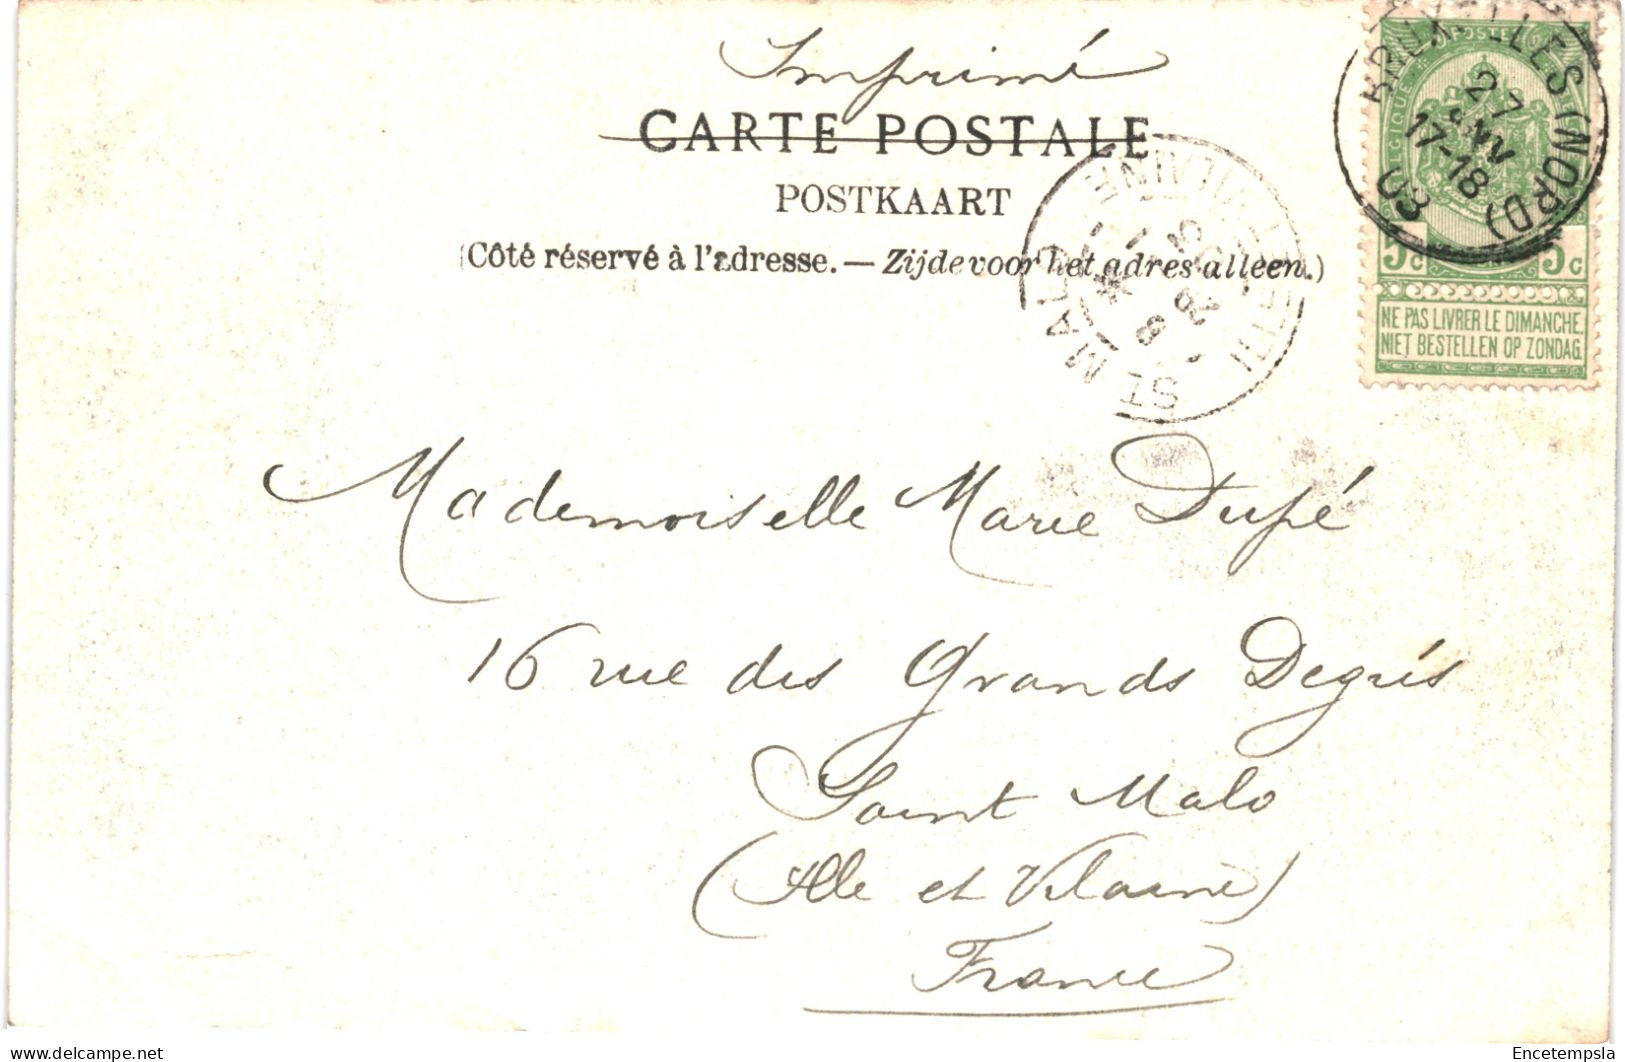 Imprimé
CARTE POSTALE
POSTKAART
(Côté réservé à l'adresse. — Zijde voor het adres alleen.)
BRUXELLES (NORD)
27
JANV
17-18
03
POSTES
BELGIQUE
5c 5c
NE PAS LIVRER LE DIMANCHE.
NIET BESTELLEN OP ZONDAG.
ST MALO
ILLE-ET-VILAINE
Mademoiselle Marie Dupé
16 rue des Grands Degrés
Saint Malo
(Ille et Vilaine)
France
Encetempsla